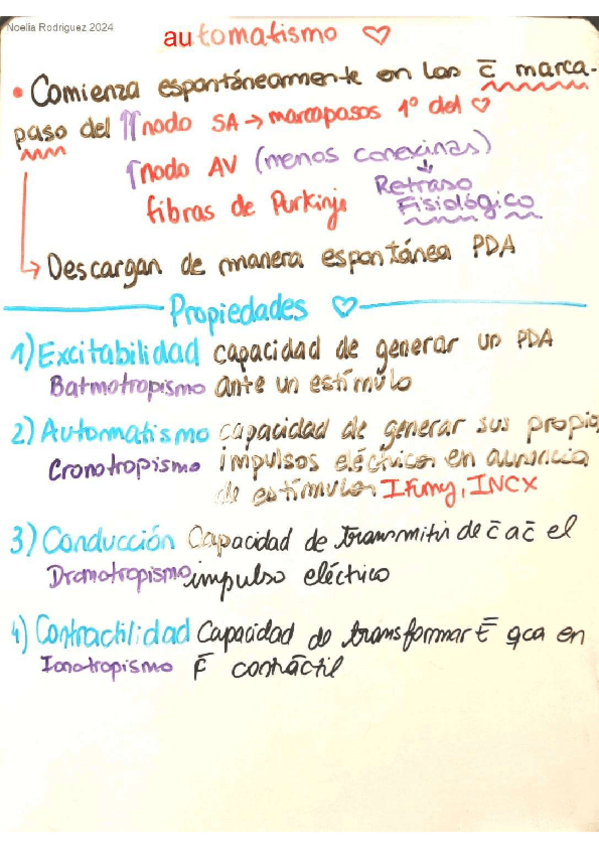 Noelia Rodriguez 2024
automatismo ♡
• Comienza espontáneamente en las c̄ marca-
paso del ⇈nodo SA → marcapasos 1º del ♡
↑nodo AV (menos conexinas)
↓
Retraso
Fisiológico
fibras de Purkinje
↳ Descargan de manera espontánea PDA
Propiedades ♡
1) Excitabilidad capacidad de generar un PDA
Batmotropismo ante un estímulo
2) Automatismo capacidad de generar sus propio
Cronotropismo impulsos eléctricos en ausencia
de estímulos Ifunny, INCX
3) Conducción Capacidad de transmitir de c̄ a c̄ el
Dromotropismo impulso eléctrico
4) Contractilidad Capacidad de transformar Ē qca en
Ionotropismo F̄ contráctil